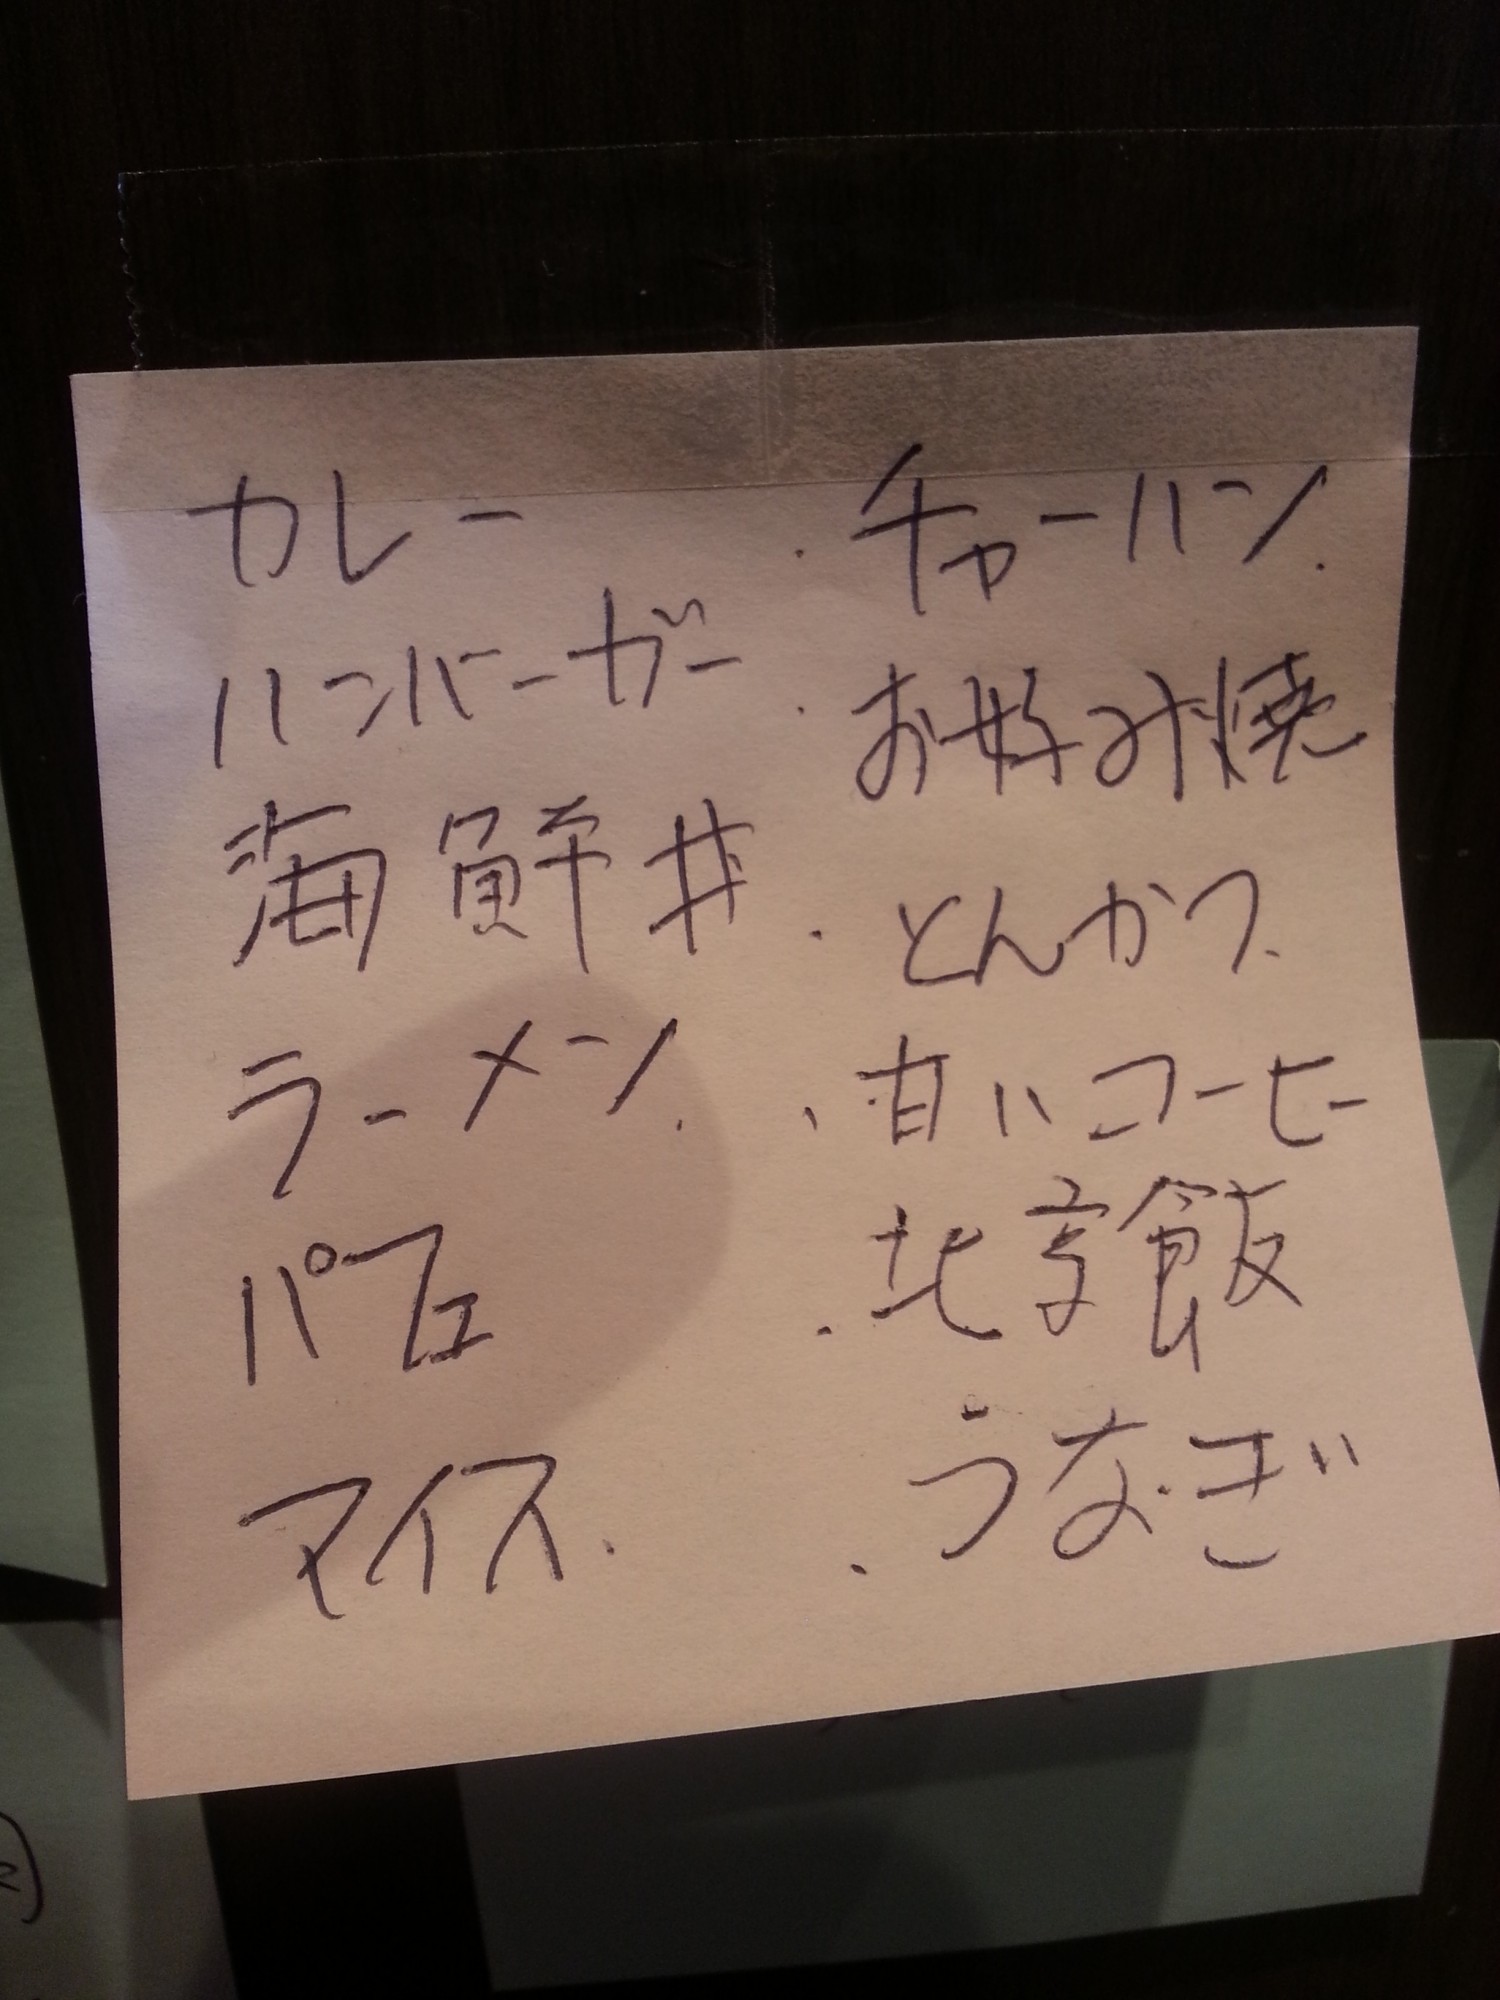 カレー
ハンバーガー
海鮮丼
ラーメン.
パフェ
アイス.
・チャーハン.
・お好み焼
・とんかつ.
・甘いコーヒー
・北京飯
・うなぎ